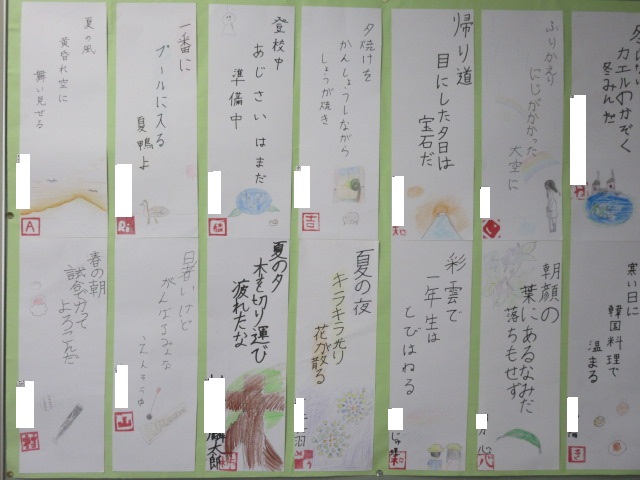 夏の風
黄昏れ空に
舞い見せる
A
一番に
プールに入る
夏鴨よ
Ri
登校中
あじさいはまだ
準備中
夕焼けを
かんしょうしながら
しょうが焼き
吉
帰り道
目にした夕日は
宝石だ
和
ふりかえり
にじがかかった
大空に
カエルのかぞく
冬みんだ
春の朝
試合でかって
よろこんだ
村
暑いけど
がんばるみんな
山
夏の夕
木を切り運び
疲れたな
太郎
夏の夜
キラキラ光り
花が散る
羽
彩雲で
一年生は
とびはねる
和
朝顔の
葉にあるなみだ
落ちもせず
心
寒い日に
韓国料理で
温まる
き